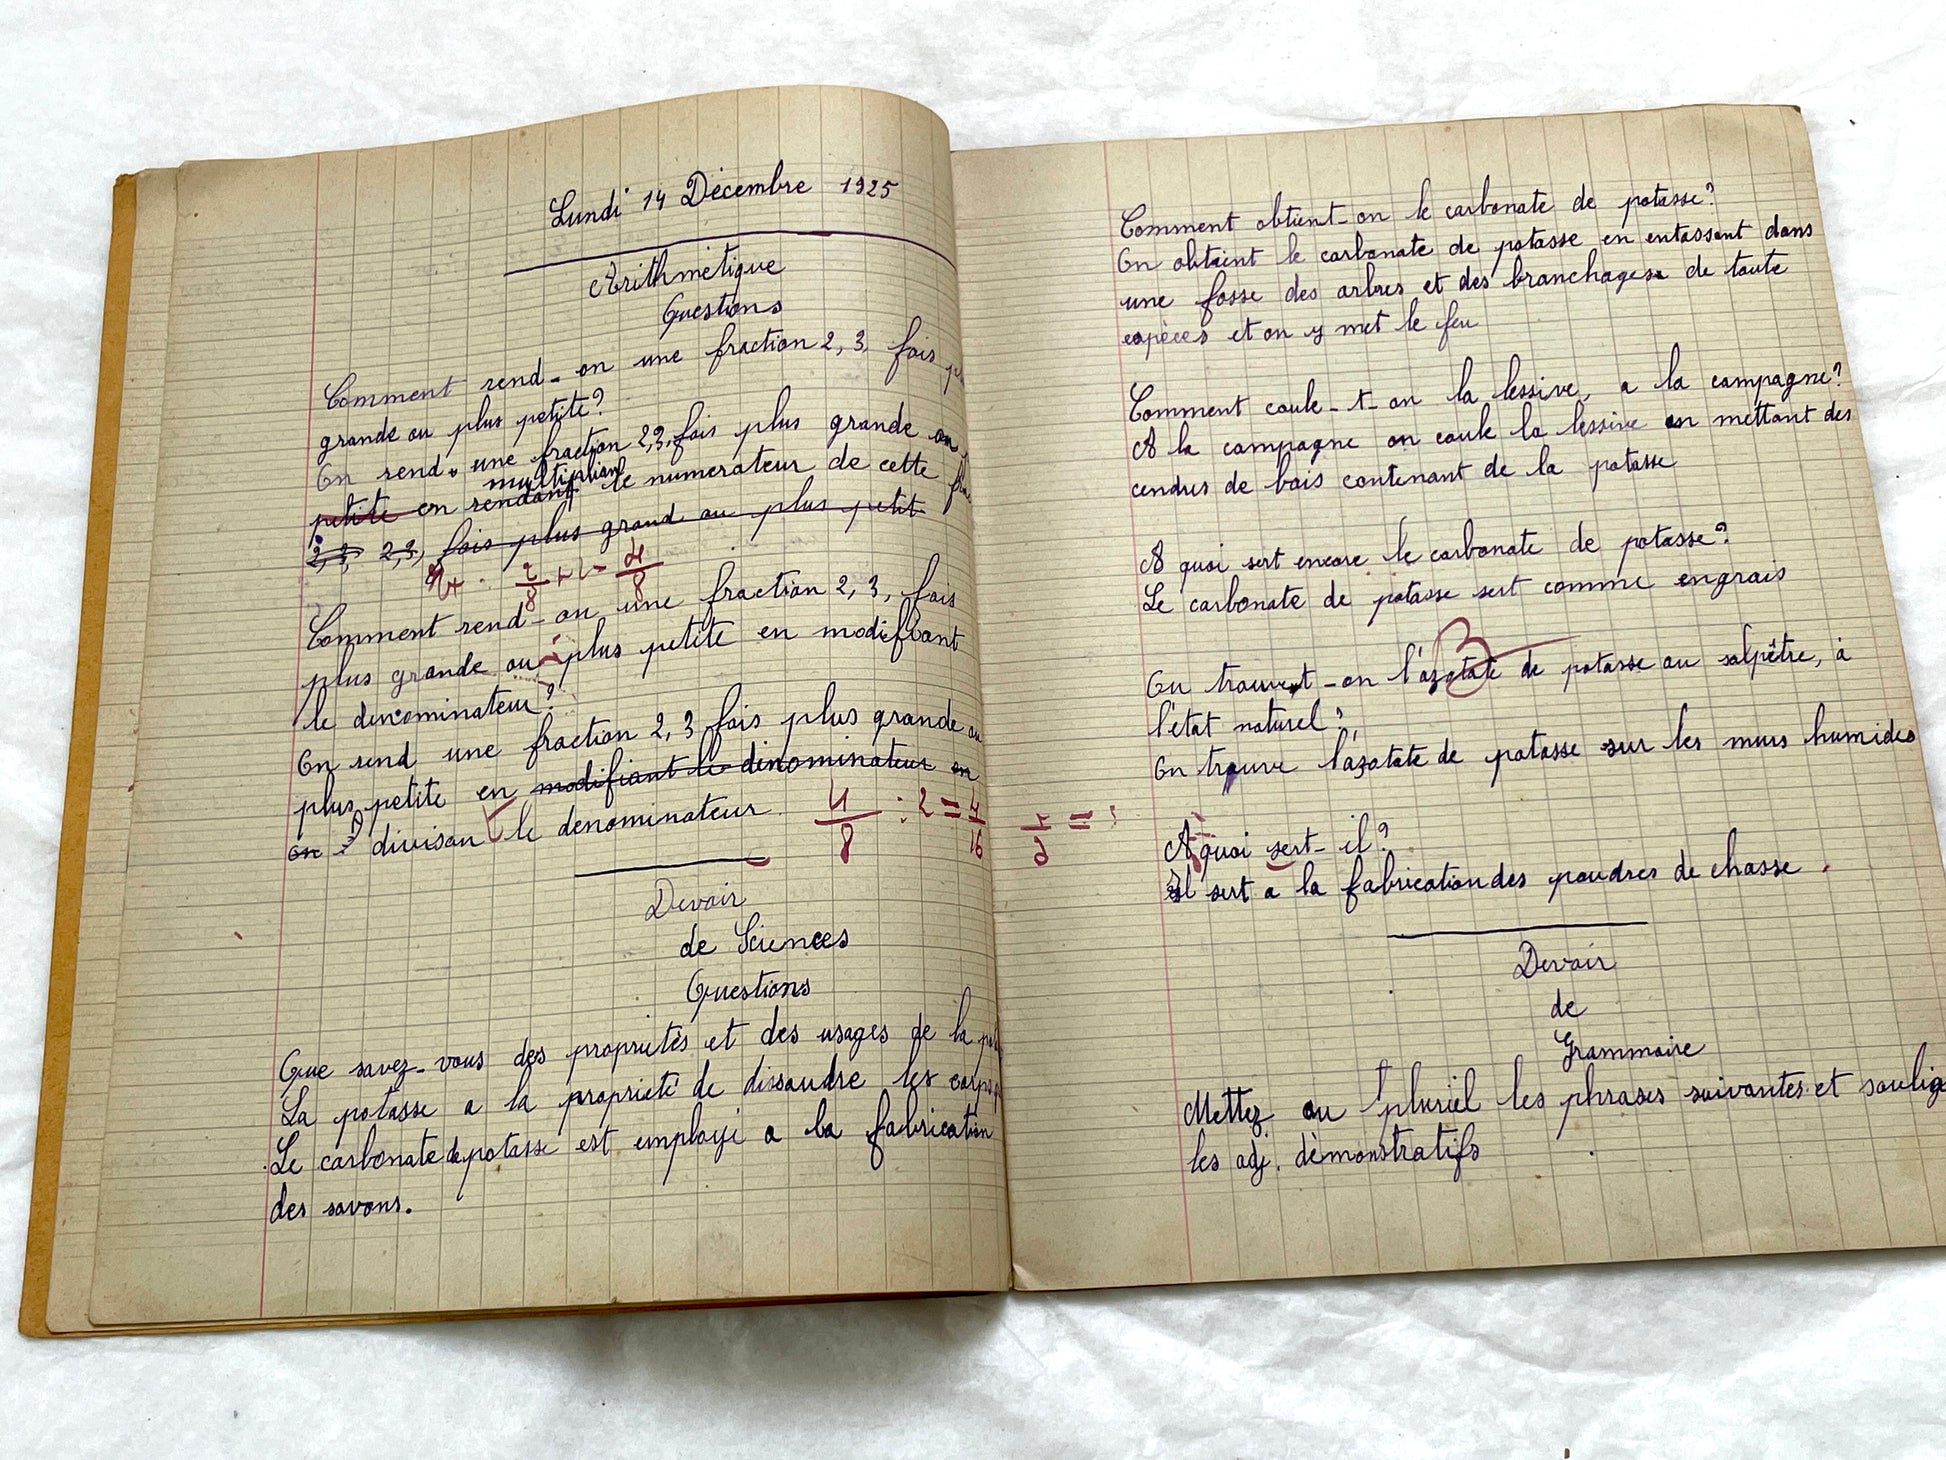 Lundi 14 Décembre 1925
Arithmétique
Questions
Comment rend-on une fraction 2, 3, fois
grande ou plus petite?
On rend une fraction 2,3, fois plus grande ou
multipliant
petite en rendant le numerateur de cette
2,3, 2,3, fois plus grand ou plus petit
Comment rend-on une fraction 2, 3, fois
plus grande ou plus petite en modifiant
le denominateur?
On rend une fraction 2, 3 fois plus grande ou
plus petite en modifiant le dénominateur en
en divisan le denominateur
4/8 : 2 = 4/16
Devoir
de Sciences
Questions
Que savez-vous des propriétés et des usages de la
La potasse a la propriété de dissoudre les corps
Le carbonate de potasse est employé a la fabrication
des savons.
Comment obtient-on le carbonate de potasse?
On obtient le carbonate de potasse en entassant dans
une fosse des arbres et des branchages de toute
espèces et on y met le feu
Comment coule-t-on la lessive, a la campagne?
A la campagne on coule la lessive en mettant des
cendres de bois contenant de la potasse
A quoi sert encore le carbonate de potasse?
Le carbonate de potasse sert comme engrais
3
Ou trouve-t-on l'azotate de potasse ou salpêtre, à
l'état naturel?
On trouve l'azotate de potasse sur les murs humides
A quoi sert-il?
Il sert a la fabrication des poudres de chasse.
Devoir
de
Grammaire
Mettez au pluriel les phrases suivantes et
les adj. démonstratifs